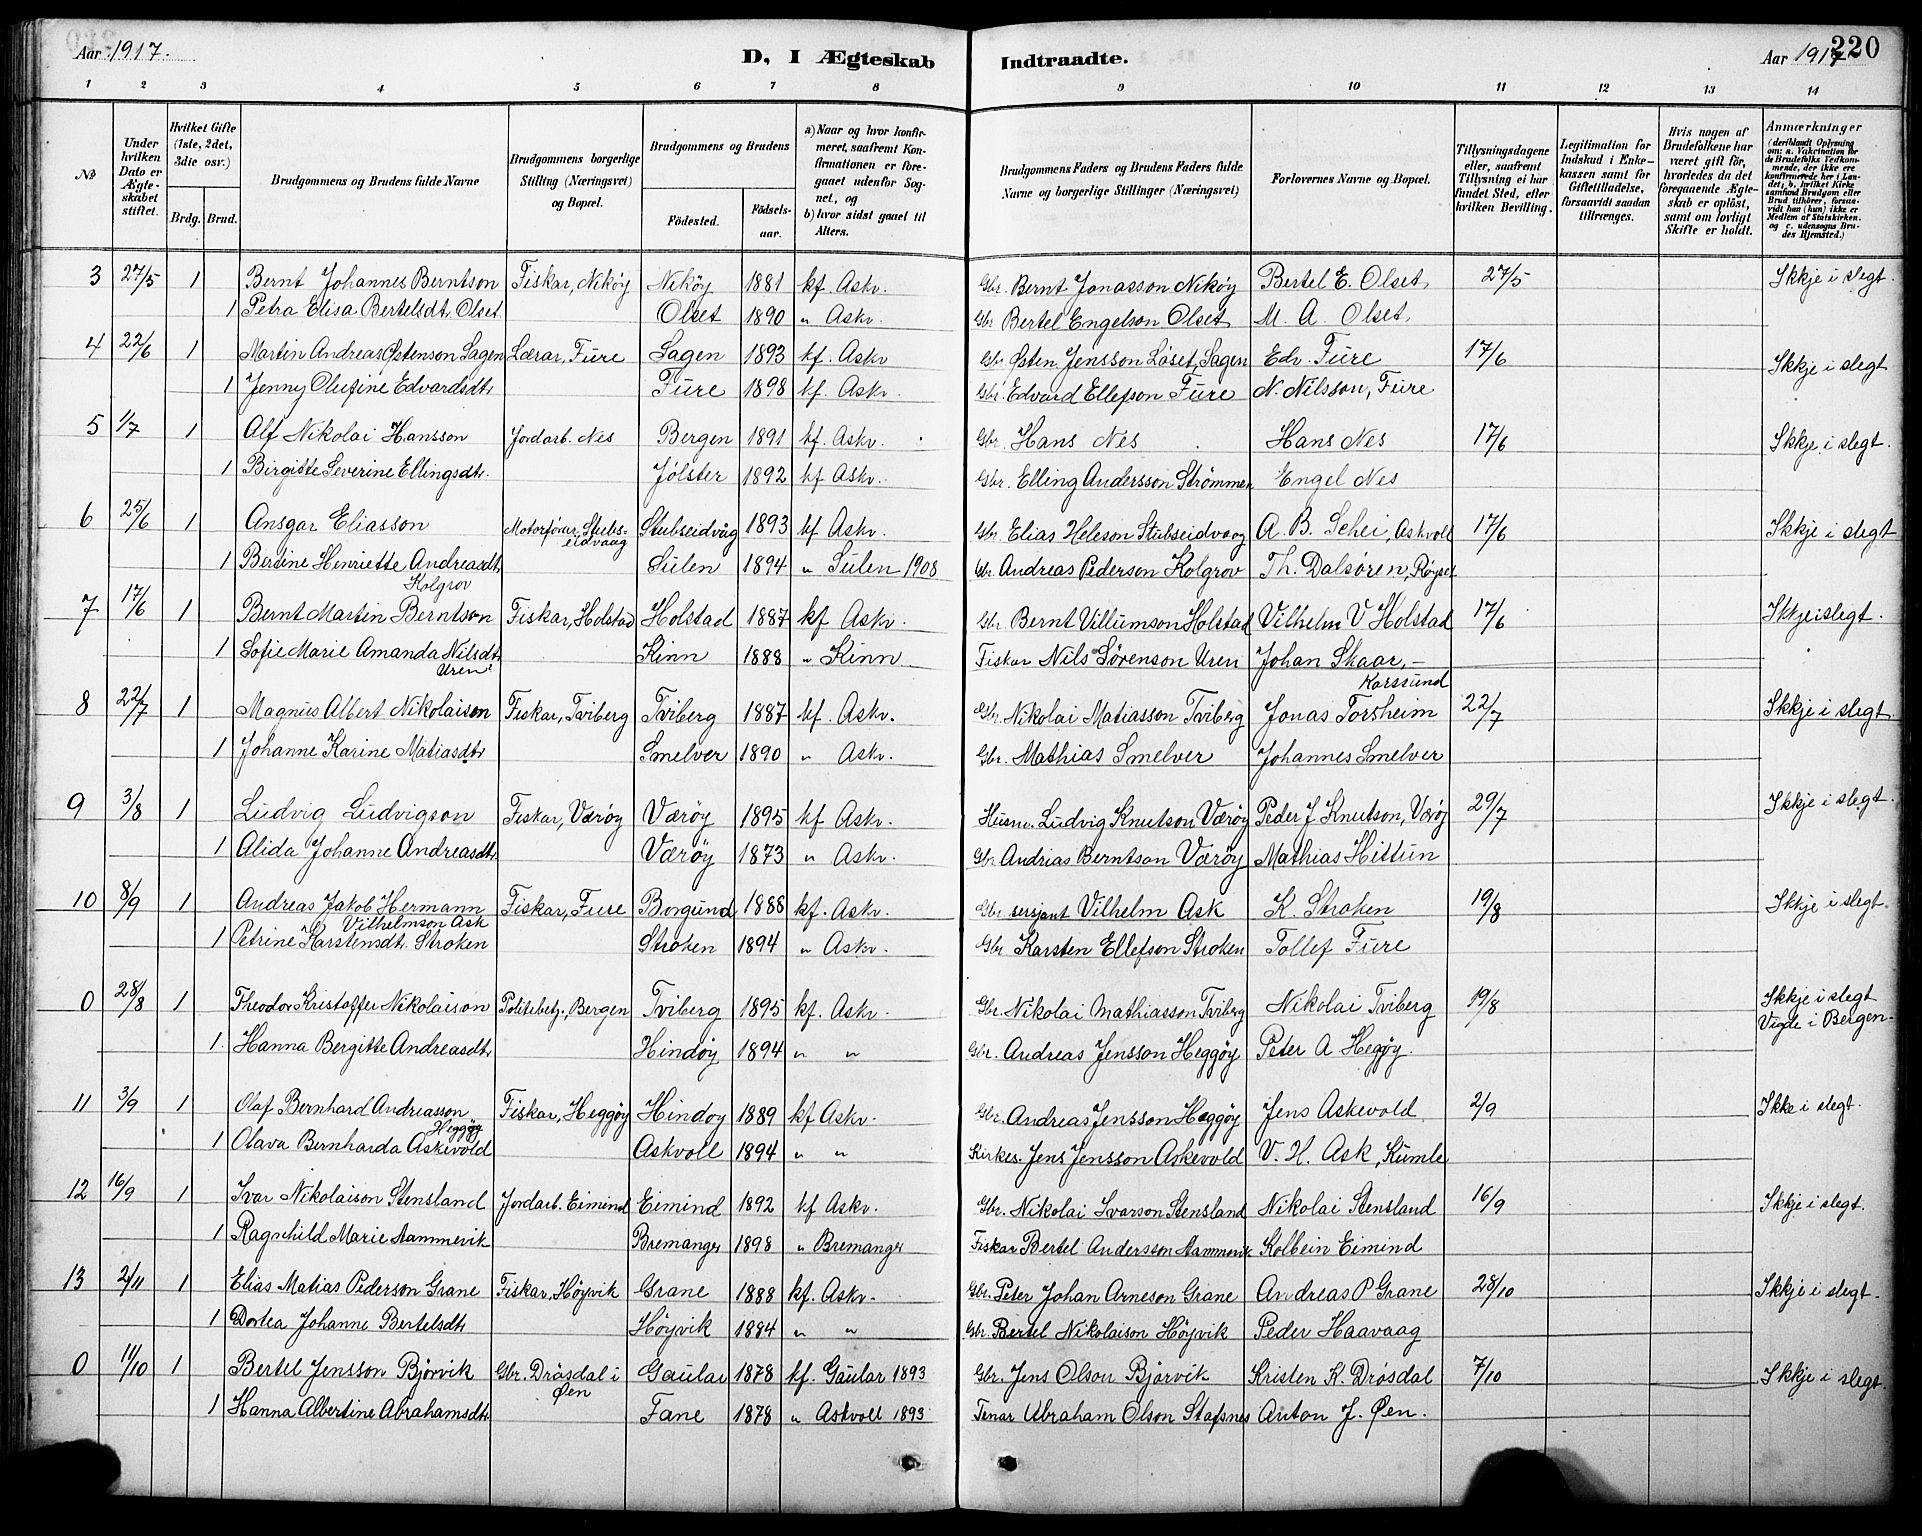 Aar 1917.
D, I Ægteskab
Indtraadte.
Aar 1917
220
1 2 3 4 5 6 7 8 9 10 11 12 13 14
No
Under hvilken Dato er Ægteskabet stiftet.
Hvilket Gifte (1ste, 2det, 3die osv.)
Brdg. Brud.
Brudgommens og Brudens fulde Navne
Brudgommens borgerlige Stilling (Næringsvei) og Bopæl.
Brudgommens og Brudens
Fødested. Fødselsaar.
a) Naar og hvor konfirmeret, saafremt Konfirmationen er foregaaet udenfor Sognet, og
b) hvor sidst gaaet til Alters.
Brudgommens Faders og Brudens Faders fulde Navne og borgerlige Stillinger (Næringsvei)
Forlovernes Navne og Bopæl.
Tillysningsdagene eller, saafremt Tillysning ei har fundet Sted, efter hvilken Bevilling.
Legitimation for Indskud i Enkekassen samt for Giftetilladelse, forsaavidt saadan tiltrænges.
Hvis nogen af Brudefolkene har været gift før, hvorledes da det foregaaende Ægteskab er opløst, samt om lovligt Skifte er holdt.
Anmærkninger (deriblandt Oplysning om: a. Vakcination for de Brudefolks Vedkommende, der ikke ere konfirmerede her i Landet; b. hvilket Kirkesamfund Brudgom eller Brud tilhører, forsaavidt han (hun) ikke er Medlem af Statskirken. og c. udensogns Brudes Hjemsted.)
3 27/5 1 Bernt Johannes Berntson Fiskar, Nikøy Nikøy 1881 kf. Askv. Gbr. Bernt Jonasson Nikøy Bertel E. Olset 27/5 Ikkje i slegt.
1 Petra Elisa Bertelsdt. Olset Olset 1890 " Askv. Gbr Bertel Engelson Olset M. A. Olset
4 22/6 1 Martin Andreas Østenson Sagen Lærar, Fure Sagen 1893 kf. Askv. Gbr. Østen Jensson Løset, Sagen Edv. Fure 17/6 Ikkje i slegt
1 Jenny Olufine Edvardsdt. Fure 1898 kf. Askv. Gbr. Edvard Ellefson Fure N. Nilsson, Fure
5 1/7 1 Alf Nikolai Hansson Jordarb. Nes Bergen 1891 kf. Askv. Gbr. Hans Nes Hans Nes 17/6 Ikkje i slegt.
1 Birgitte Severine Ellingsdt. Jølster 1892 kf Askv. Gbr. Elling Andersson Strømmen Engel Nes
6 25/6 1 Ansgar Eliasson Motorførar, Stubseidvaag Stubseidvåg 1893 kf Askv. Gbr. Elias Heleson Stubseidvaag A. B. Schei, Askvoll 17/6 Ikkje i slegt
1 Berdine Henriette Andreasdt. Kolgrov Sulen 1894 " Sulen 1908 Gbr. Andreas Pederson Kolgrov Th. Dalsøren, Røyset
7 17/6 1 Bernt Martin Berntson Fiskar, Holstad Holstad 1887 kf Askv. Gbr. Bernt Villumson Holstad Vilhelm V Holstad 17/6 Ikkje i slegt.
1 Sofie Marie Amanda Nilsdt. Uren Kinn 1888 " Kinn Fiskar Nils Sørenson Uren Johan Skaar, - Karssund
8 22/7 1 Magnus Albert Nikolaison Fiskar, Tviberg Tviberg 1887 kf. Askv. Gbr. Nikolai Matiasson Tviberg Jonas Torsheim 22/7 Ikkje i slegt.
1 Johanne Karine Matiasdt. Smelver 1890 " Askv. Gbr. Mathias Smelver Johannes Smelver
9 3/8 1 Ludvig Ludvigson Fiskar, Værøy Værøy 1895 kf Askv. Husm. Ludvig Knutson Værøy Peder J Knutson, Værøy 29/7 Ikkje i slegt.
1 Alida Johanne Andreasdt. Værøy 1873 " Askv. Gbr. Andrias Berntson Værøy Mathias Hittun
10 8/9 1 Andreas Jakob Hermann Vilhelmson Ask Fiskar, Fure Borgund 1888 kf. Askv. Gbr. sersjant Vilhelm Ask K. Stroken 19/8 Ikkje i slegt.
1 Petrine Karstensdt. Stroken Stroken 1894 " Askv. Gbr Karsten Ellefson Stroken Tollef Fure
0 28/8 1 Theodor Kristoffer Nikolaison Politibetj., Bergen Tviberg 1895 kf. Askv. Gbr. Nikolai Mathiasson Tviberg Nikolai Tviberg 19/8 Ikkje i slegt Vigde i Bergen.
1. Hanna Bergitte Andreasdt. Hindøy 1894 " " Gbr. Andreas Jensson Heggøy Peter A Heggøy.
11 3/9 1 Olaf Bernhard Andreasson Heggøy Fiskar, Heggøy Hindoy 1889 kf Askv. Gbr. Andreas Jensson Heggøy Jens Askevold 2/9 Ikke i slegt.
1 Olava Bernharda Askevold Askvoll 1894 " " Kirkes. Jens Jensson Askevold V. H. Ask, Kumle
12 16/9 1 Ivar Nikolaison Stensland Jordarb. Eimind Eimind 1892 kf Askv. Gbr. Nikolai Ivarson Stensland Nikolai Stensland 16/9 Ikkje i slegt.
1 Ragnhild Marie Hammervik Bremanger 1898 " Bremanger Fiskar Bertel Andersson Hammervik Kolbein Eimind
13 2/11 1 Elias Matias Pederson Grane Fiskar, Høyvik Grane 1888 kf. Askv. Gbr. Peter Johan Arneson Grane Andreas P Grane 28/10 Ikkje i slegt.
1 Dortea Johanne Bertelsdt. Høyvik 1884 " " Gbr. Bertel Nikolaison Høyvik Peder Haavaag
0 11/10 1 Bertel Jensson Bjørvik Gbr. Drøsdal i Øen Gaular 1878 kf. Gaular 1893 Gbr. Jens Olson Bjørvik Kristen K. Drøsdal 7/10 Ikkje i slegt.
1 Hanna Albertine Abrahamsdt. Fane 1878 " Askvoll 1893 Tenar Abraham Olson Stafsnes Anton J. Øen.